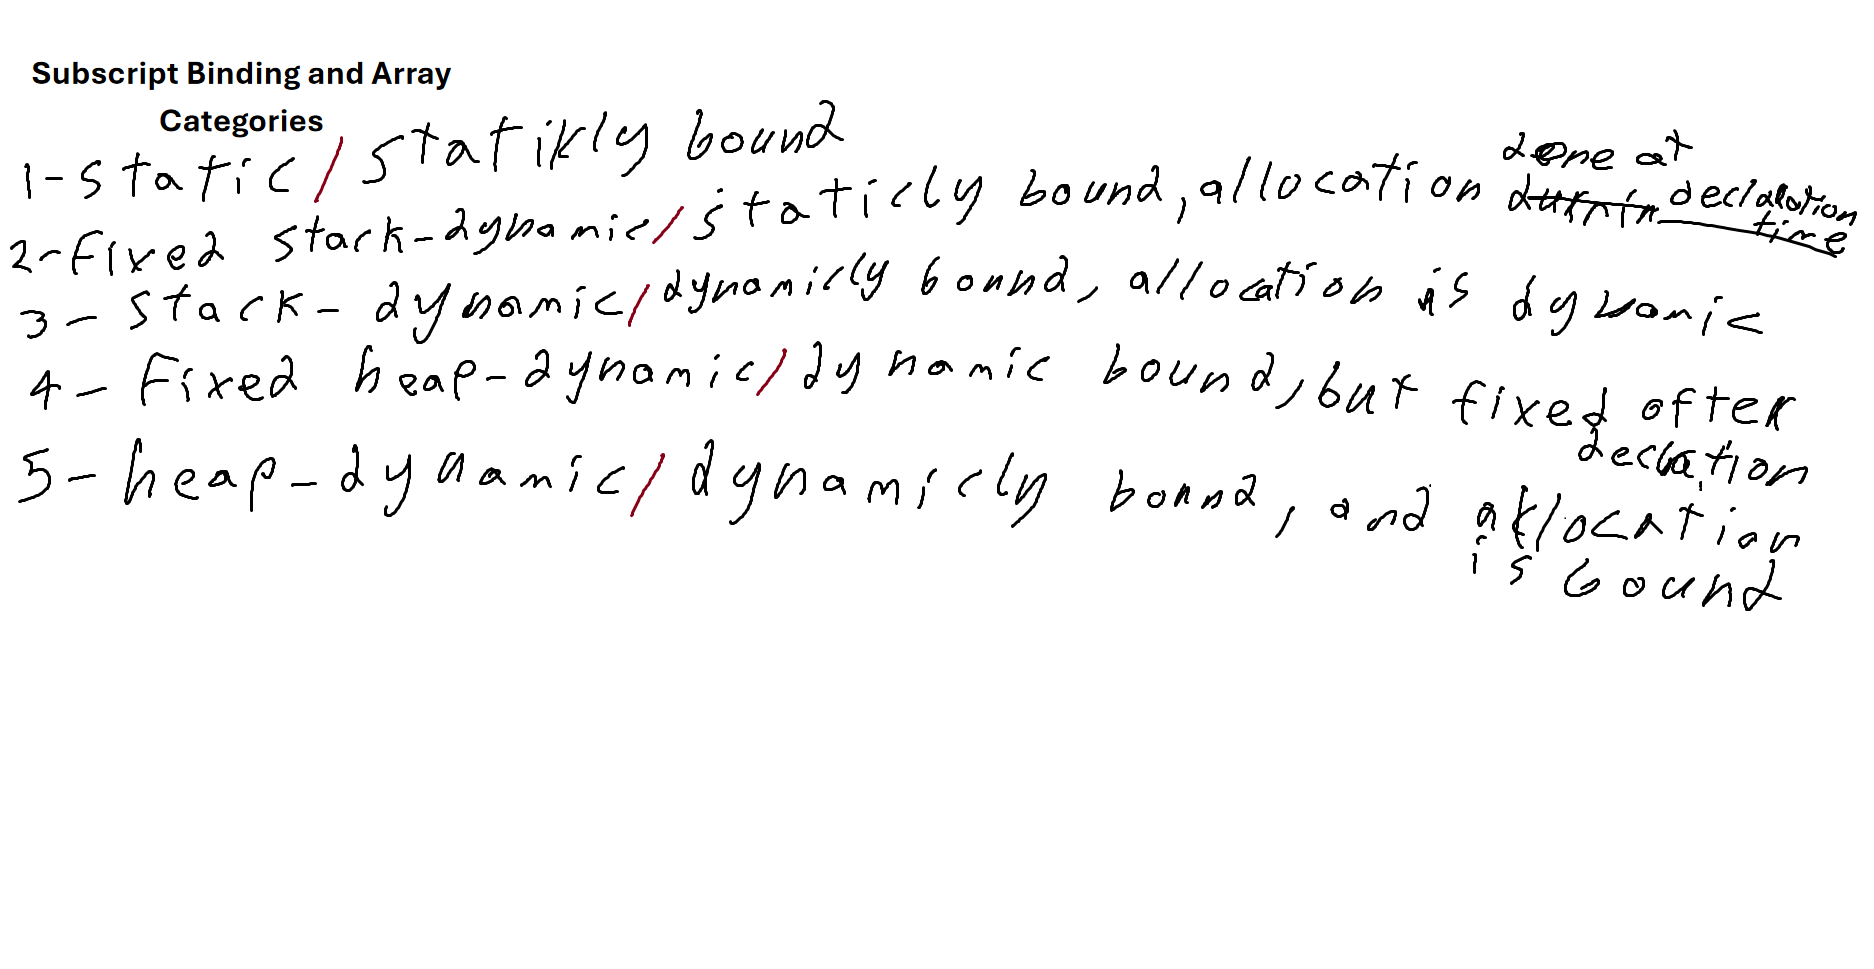 Subscript Binding and Array
Categories
1-static/statikly bound
2-fixed stack-dynamic/staticly bound, allocation done at durnin declaration time
3- stack-dynamic/dynamicly bound, allocation is dynamic
4- Fixed heap-dynamic/dynamic bound, but fixed after
declation
5- heap-dynamic/dynamicly bound, and allocation
is bound